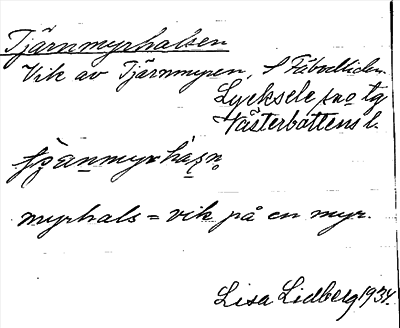 Tjärnmyrhalsen
Vik av Tjärnmyren, S Fäboliden.
Lycksele sno tg
Västerbottens l.
myrhals = vik på en myr.
Lisa Lidberg 1934.